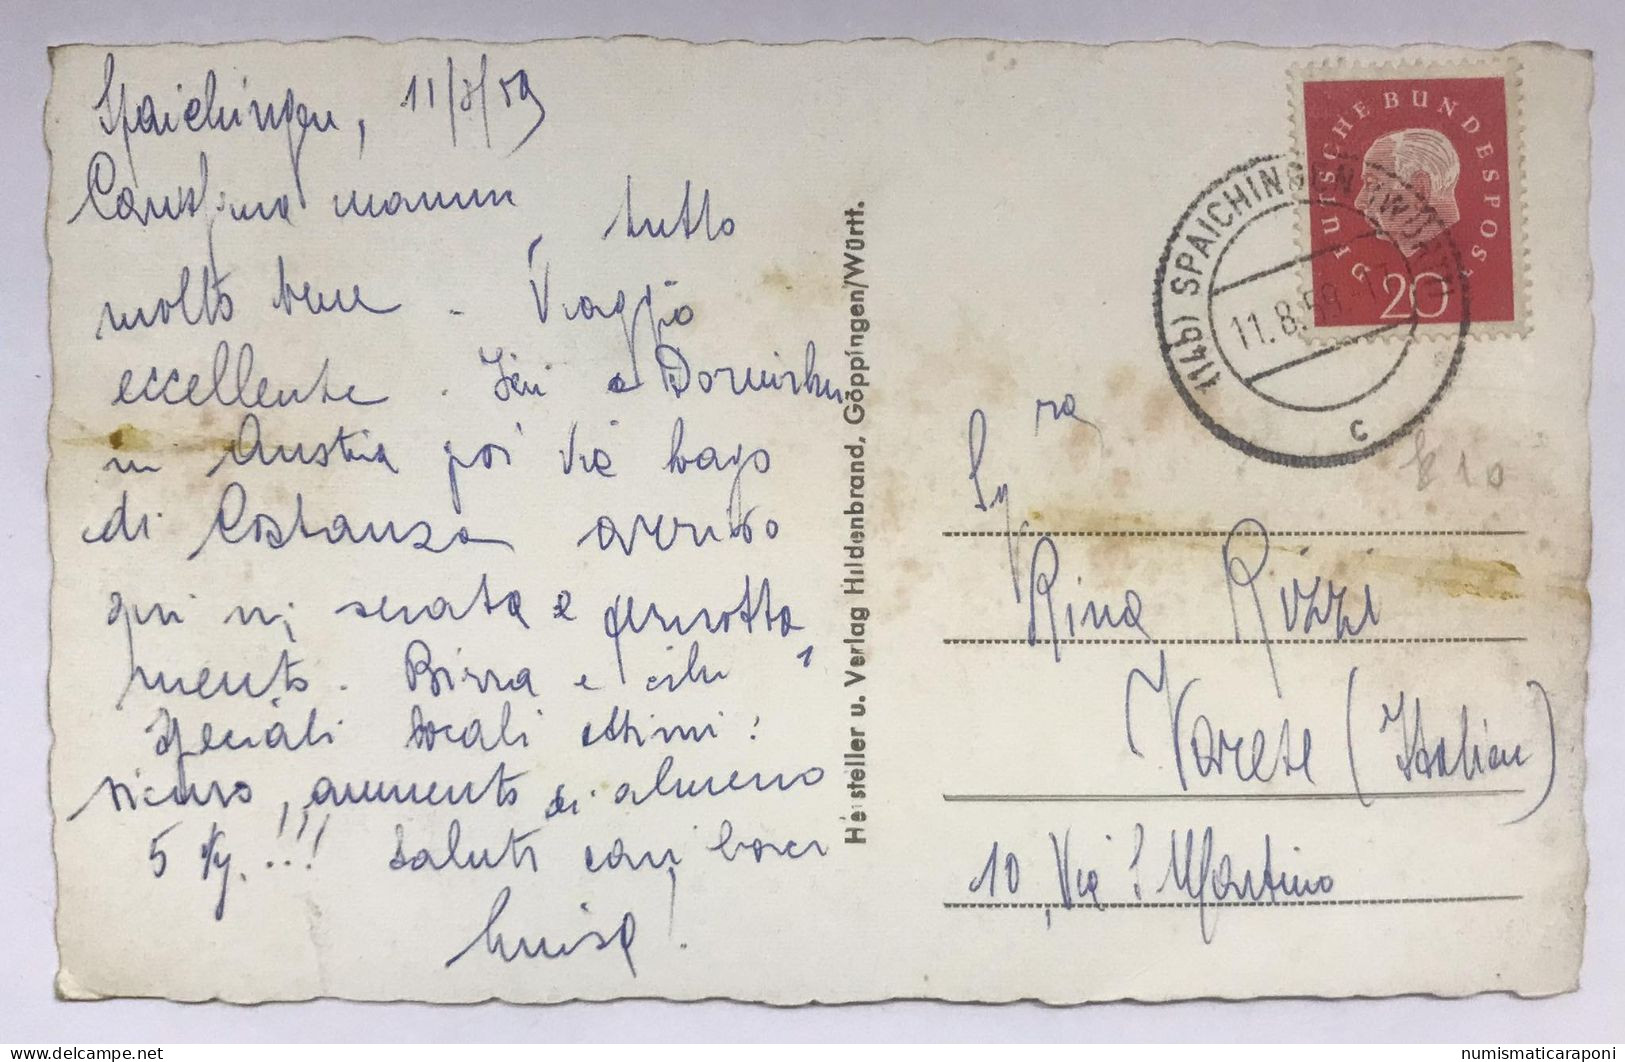 Spaichingen, 11/8/59
Carissima mamma, tutto
molto bene. Viaggio
eccellente. Ieri a
in Austria poi via lago
di Costanza arrivo
qui in serata e pernotta
mento. Birra e cibi
speciali locali ottimi!
sicuro, aumento di almeno
5 Kg...!!! Saluti cari baci
Luisa.
Hersteller u. Verlag Hildenbrand, Göppingen/Württ.
DEUTSCHE BUNDESPOST
20
(14b) SPAICHINGEN (WÜRTT)
11.8.59
c
Sig.ra
Rina Rizzi
Varese (Italien)
10, Via S. Martino
delcampe.net
numismaticaraponi